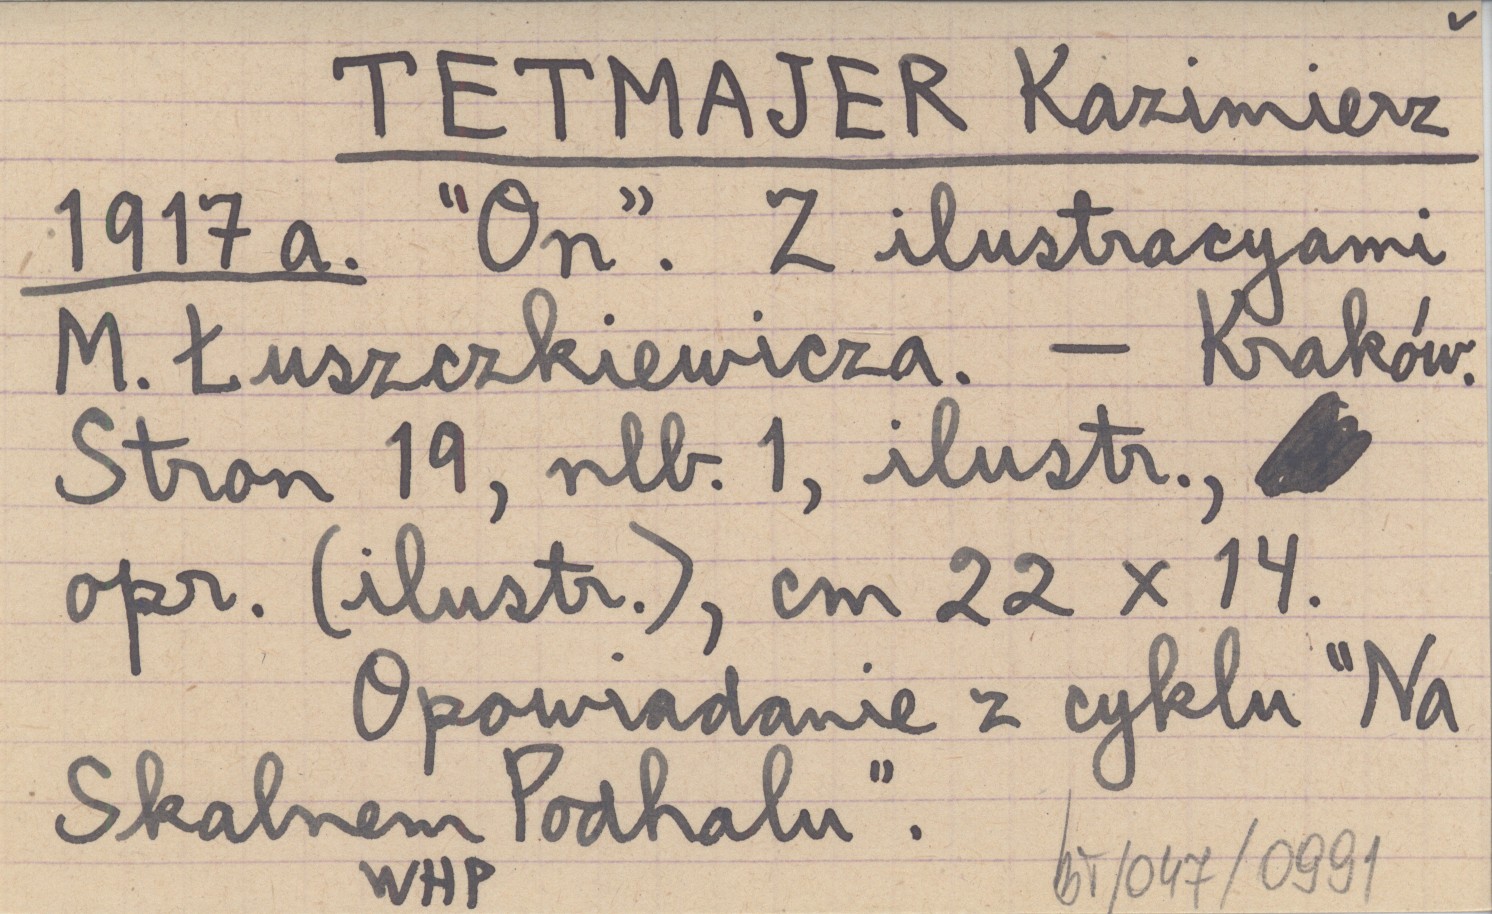 TETMAJER Kazimierz
1917 a. "On". Z ilustracyami
M. Łuszczkiewicza. — Kraków.
Stron 19, nlb. 1, ilustr.,
opr. (ilustr.), cm 22 x 14.
Opowiadanie z cyklu "Na
Skalnem Podhalu".
WHP
bT/047/0991